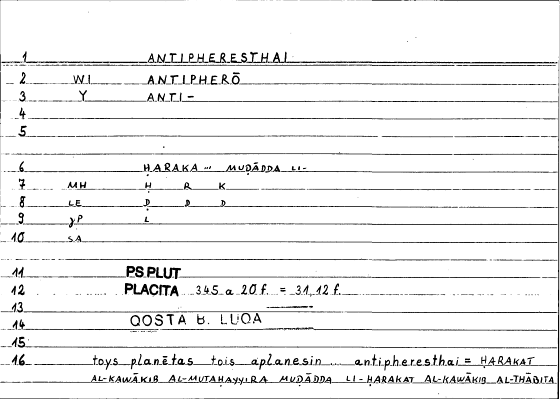 1 ANTIPHERESTHAI
2 WI ANTIPHERŌ
3 Y ANTI-
4
5
6 ḤARAKA ... MUḌĀDDA LI-
7 MH Ḥ R K
8 LE Ḍ D D
9 γP L
10 SA
11 PS PLUT
12 PLACITA 345 a 20 f. = 31,12 f.
13
14 QOSTA B. LUQA
15
16 toys planētas tois aplanesin ... antipheresthai = ḤARAKAT
AL-KAWĀKIB AL-MUTAḤAYYIRA MUḌĀDDA LI-ḤARAKAT AL-KAWĀKIB AL-THĀBITA